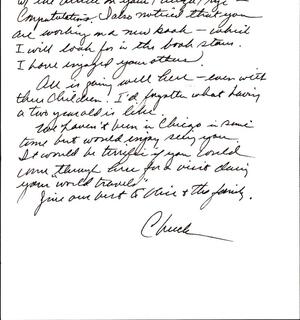 Congratulations. I also noticed that you
are working on a new book - which
I will look for in the book stores.
I have enjoyed your others!
All is going well here - even with
three children. I'd forgotten what having
a two year old is like.
We haven't been in Chicago in some
time but would enjoy seeing you.
It would be terrific if you could
come through here for a visit during
your world travels!
Give our best to & the family.
Chuck